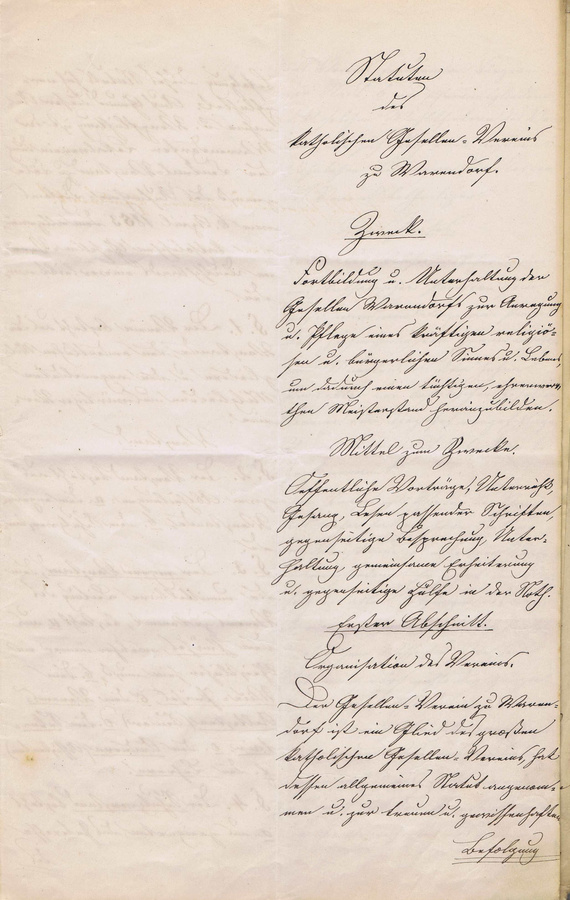 Statuten
des
katholischen Gesellen-Vereins
zu Warendorf.
Zweck.
Fortbildung u. Unterhaltung der
Gesellen Warendorfs zur Anregung
u. Pflege eines kräftigen religiö-
sen u. bürgerlichen Sinnes u. Lebens,
um dadurch einen tüchtigen, ehrenwer-
then Meisterstand heranzubilden.
Mittel zum Zwecke.
Oeffentliche Vorträge, Unterricht,
Gesang, Lesen passender Schriften,
gegenseitige Besprechung, Unter-
haltung, gemeinsame Erheiterung
u. gegenseitige Hülfe in der Noth.
Erster Abschnitt.
Organisation des Vereins.
Der Gesellen-Verein zu Waren-
dorf ist ein Glied des großen
katholischen Gesellen-Vereins, hat
dessen allgemeines Statut angenom-
men u. zur treuen u. gewissenhaften
Befolgung